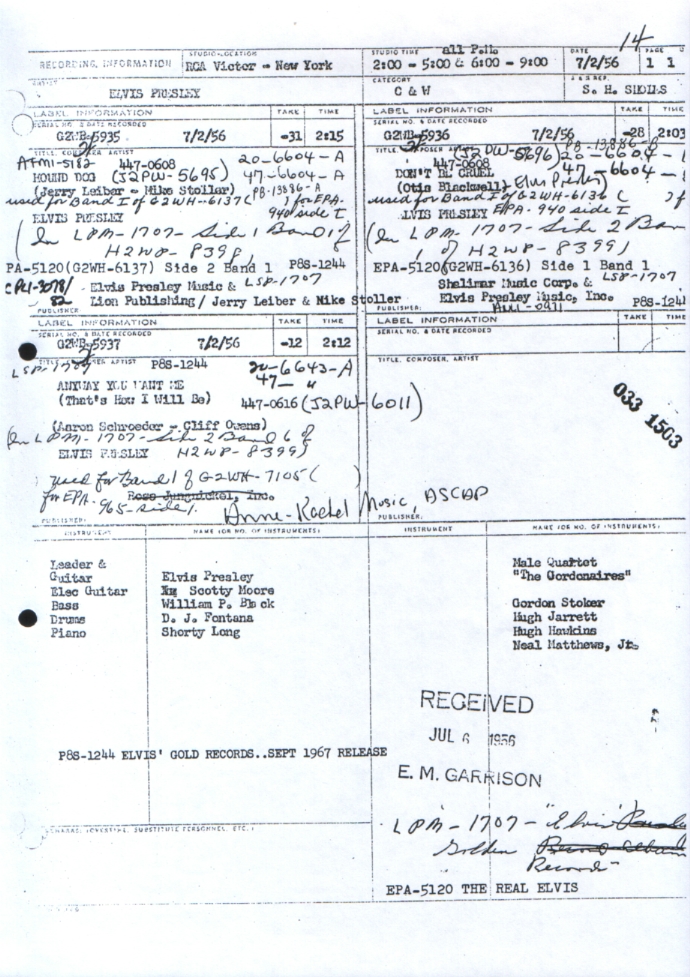 14
RECORDING INFORMATION
STUDIO-LOCATION
RCA Victor - New York
STUDIO TIME all P.M.
2:00 - 5:00 & 6:00 - 9:00
DATE
7/2/56
PAGE
1 1
ARTIST
ELVIS PRESLEY
CATEGORY
C & W
A & R REP.
S. H. SHOLES
LABEL INFORMATION
TAKE
TIME
SERIAL NO. & DATE RECORDED
G2WB-5935 7/2/56 -31 2:15
TITLE, COMPOSER, ARTIST
AFM1-5182 447-0608 20-6604-A
HOUND DOG (J2PW-5695) 47-6604-A
(Jerry Leiber - Mike Stoller) PB-13886-A
used for Band 1 of G2WH-6137 ( ) for EPA-
ELVIS PRESLEY 940 side I
(In LPM-1707- Side 1 Band 1 of
H2WP-8398)
PA-5120(G2WH-6137) Side 2 Band 1 P8S-1244
CPL1-3078/ Elvis Presley Music & LSP-1707
82 Lion Publishing/ Jerry Leiber & Mike Stoller
PUBLISHER
LABEL INFORMATION
TAKE
TIME
SERIAL NO. & DATE RECORDED
G2WB-5936 7/2/56 -28 2:03
TITLE, COMPOSER, ARTIST
(J2PW-5696) PB-13886-B
447-0608 20-6604-
DON'T BE CRUEL 47-6604-
(Otis Blackwell, Elvis Presley)
used for Band 1 of G2WH-6136 ( ) f
ELVIS PRESLEY EPA-940 side I
(In LPM-1707- Side 2 Ban
1 of H2WP-8399)
EPA-5120(G2WH-6136) Side 1 Band 1
Shalimar Music Corp. & LSP-1707
Elvis Presley Music, Inc. P8S-124
PUBLISHER:
LABEL INFORMATION
TAKE
TIME
SERIAL NO. & DATE RECORDED
G2WB-5937 -12 2:12
LSP-1707 P8S-1244 20-6643-A
ANYWAY YOU WANT ME 47- "
(That's How I Will Be) 447-0616 (J2PW-6011)
(Aaron Schroeder - Cliff Owens)
(In LPM-1707- Side 2 Band 6 of
ELVIS PRESLEY H2WP-8399)
used for Band 1 of G2WH-7105 ( )
for EPA- Ross Jungnickel, Inc.
965-side 1. Anne-Rachel Music, ASCAP
PUBLISHER:
LABEL INFORMATION
TAKE
TIME
SERIAL NO. & DATE RECORDED
TITLE, COMPOSER, ARTIST
033 1503
PUBLISHER:
INSTRUMENT
NAME (OR NO. OF INSTRUMENTS)
INSTRUMENT
NAME (OR NO. OF INSTRUMENTS)
Leader &
Guitar Elvis Presley
Elec Guitar Scotty Moore
Bass William P. Black
Drums D. J. Fontana
Piano Shorty Long
Male Quartet
"The Gordonaires"
Gordon Stoker
Hugh Jarrett
Hugh Hawkins
Neal Matthews, Jr.
RECEIVED
JUL 6 1956
E. M. GARRISON
P8S-1244 ELVIS' GOLD RECORDS..SEPT 1967 RELEASE
REMARKS: (OVERTIME, SUBSTITUTE PERSONNEL, ETC.)
LPM-1707- "Elvis'
Golden
Records"
EPA-5120 THE REAL ELVIS